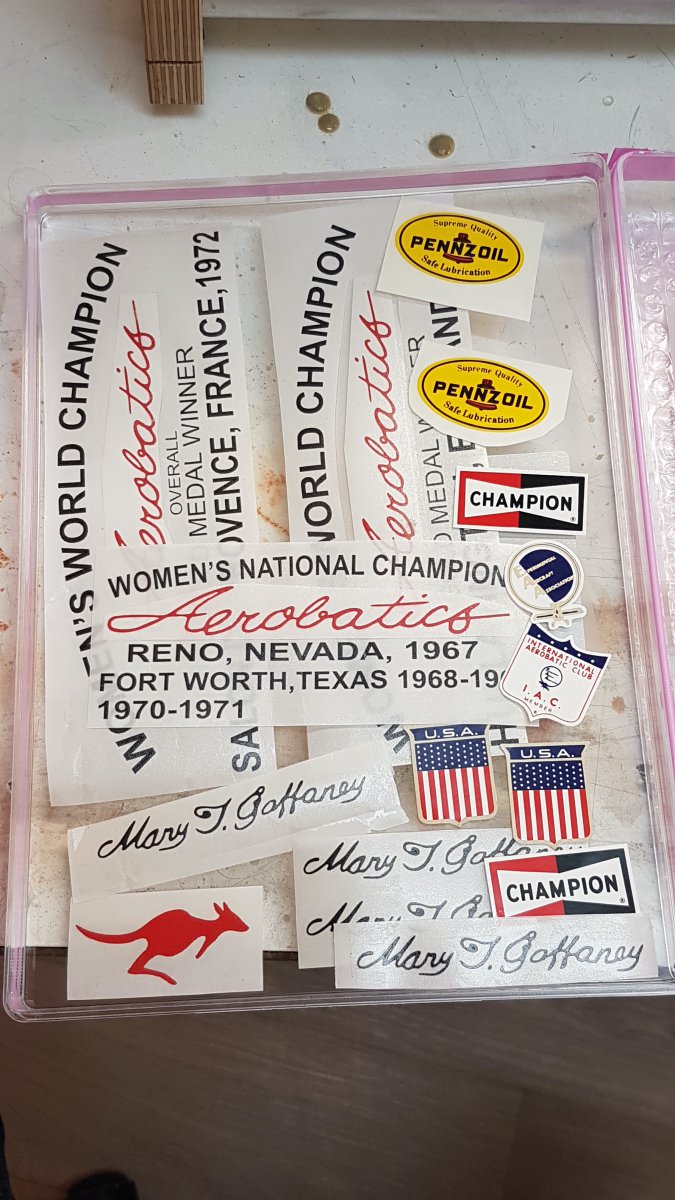 N'S WORLD CHAMPION
Aerobatics
OVERALL
MEDAL WINNER
OVENCE, FRANCE,1972
WORLD CHAMPION
Aerobatics
MEDAL
Supreme Quality
PENNZOIL
Safe Lubrication
Supreme Quality
PENNZOIL
Safe Lubrication
CHAMPION
EAA
EXPERIMENTAL
AIRCRAFT
ASSOCIATION
INTERNATIONAL
AEROBATIC CLUB
I.A.C.
MEMBER
WOMEN'S NATIONAL CHAMPION
Aerobatics
RENO, NEVADA, 1967
FORT WORTH,TEXAS 1968-19
1970-1971
U.S.A.
U.S.A.
Mary T. Gaffaney
Mary T. Gaffaney
CHAMPION
Mary T. G
Mary T. Gaffaney